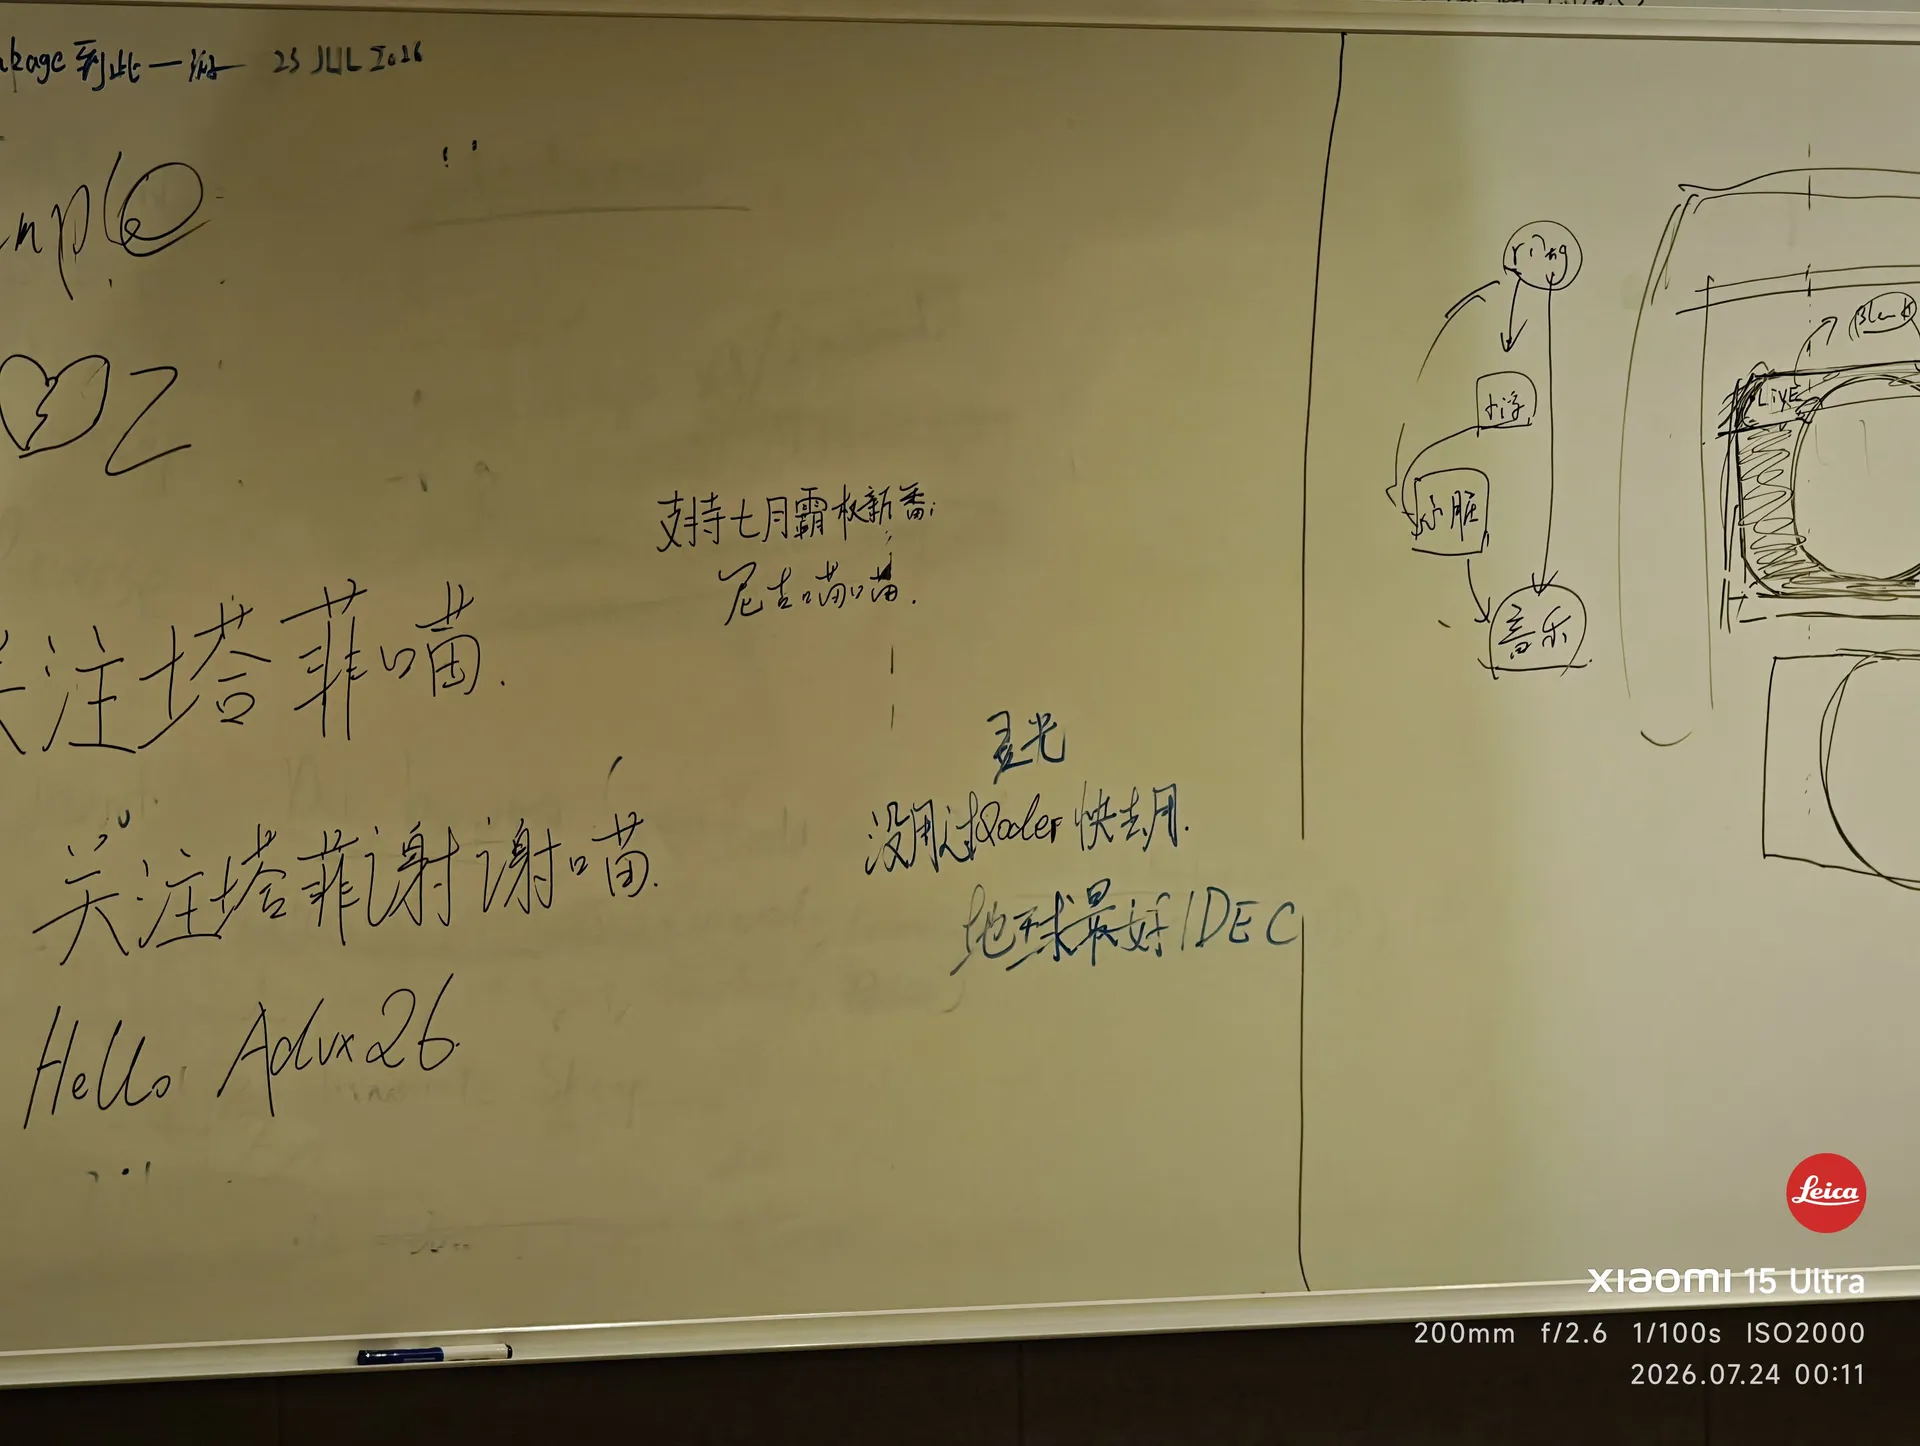 到此一游 23 JUL 2026
Z
支持七月霸权新番:
尼古喵喵.
关注塔菲喵.
关注塔菲谢谢喵.
Hello Advx26
灵光
没用过Qoder快去用.
地球最好IDEC
ring
心脏
音乐
LIVE
Blank
Leica
XIAOMI 15 Ultra
200mm f/2.6 1/100s ISO2000
2026.07.24 00:11